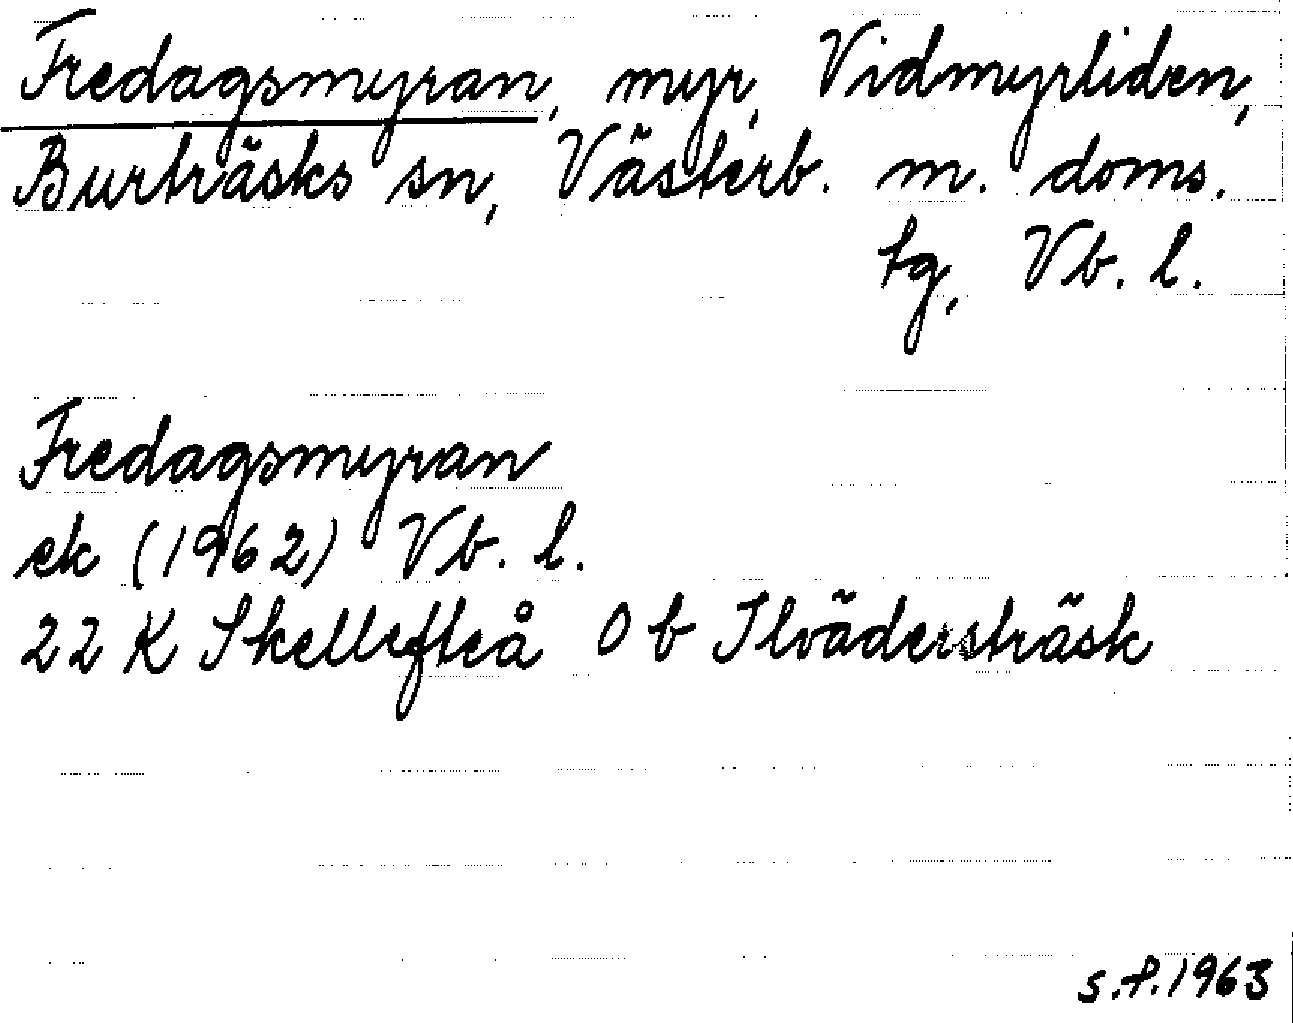 Fredagsmyran, myr, Vidmyrliden,
Burträsks sn, Västerb. m. doms.
tg, Vb. l.
Fredagsmyran
ek (1962) Vb. l.
22 K Skellefteå 0 b Ilvädersträsk
s.f.1963